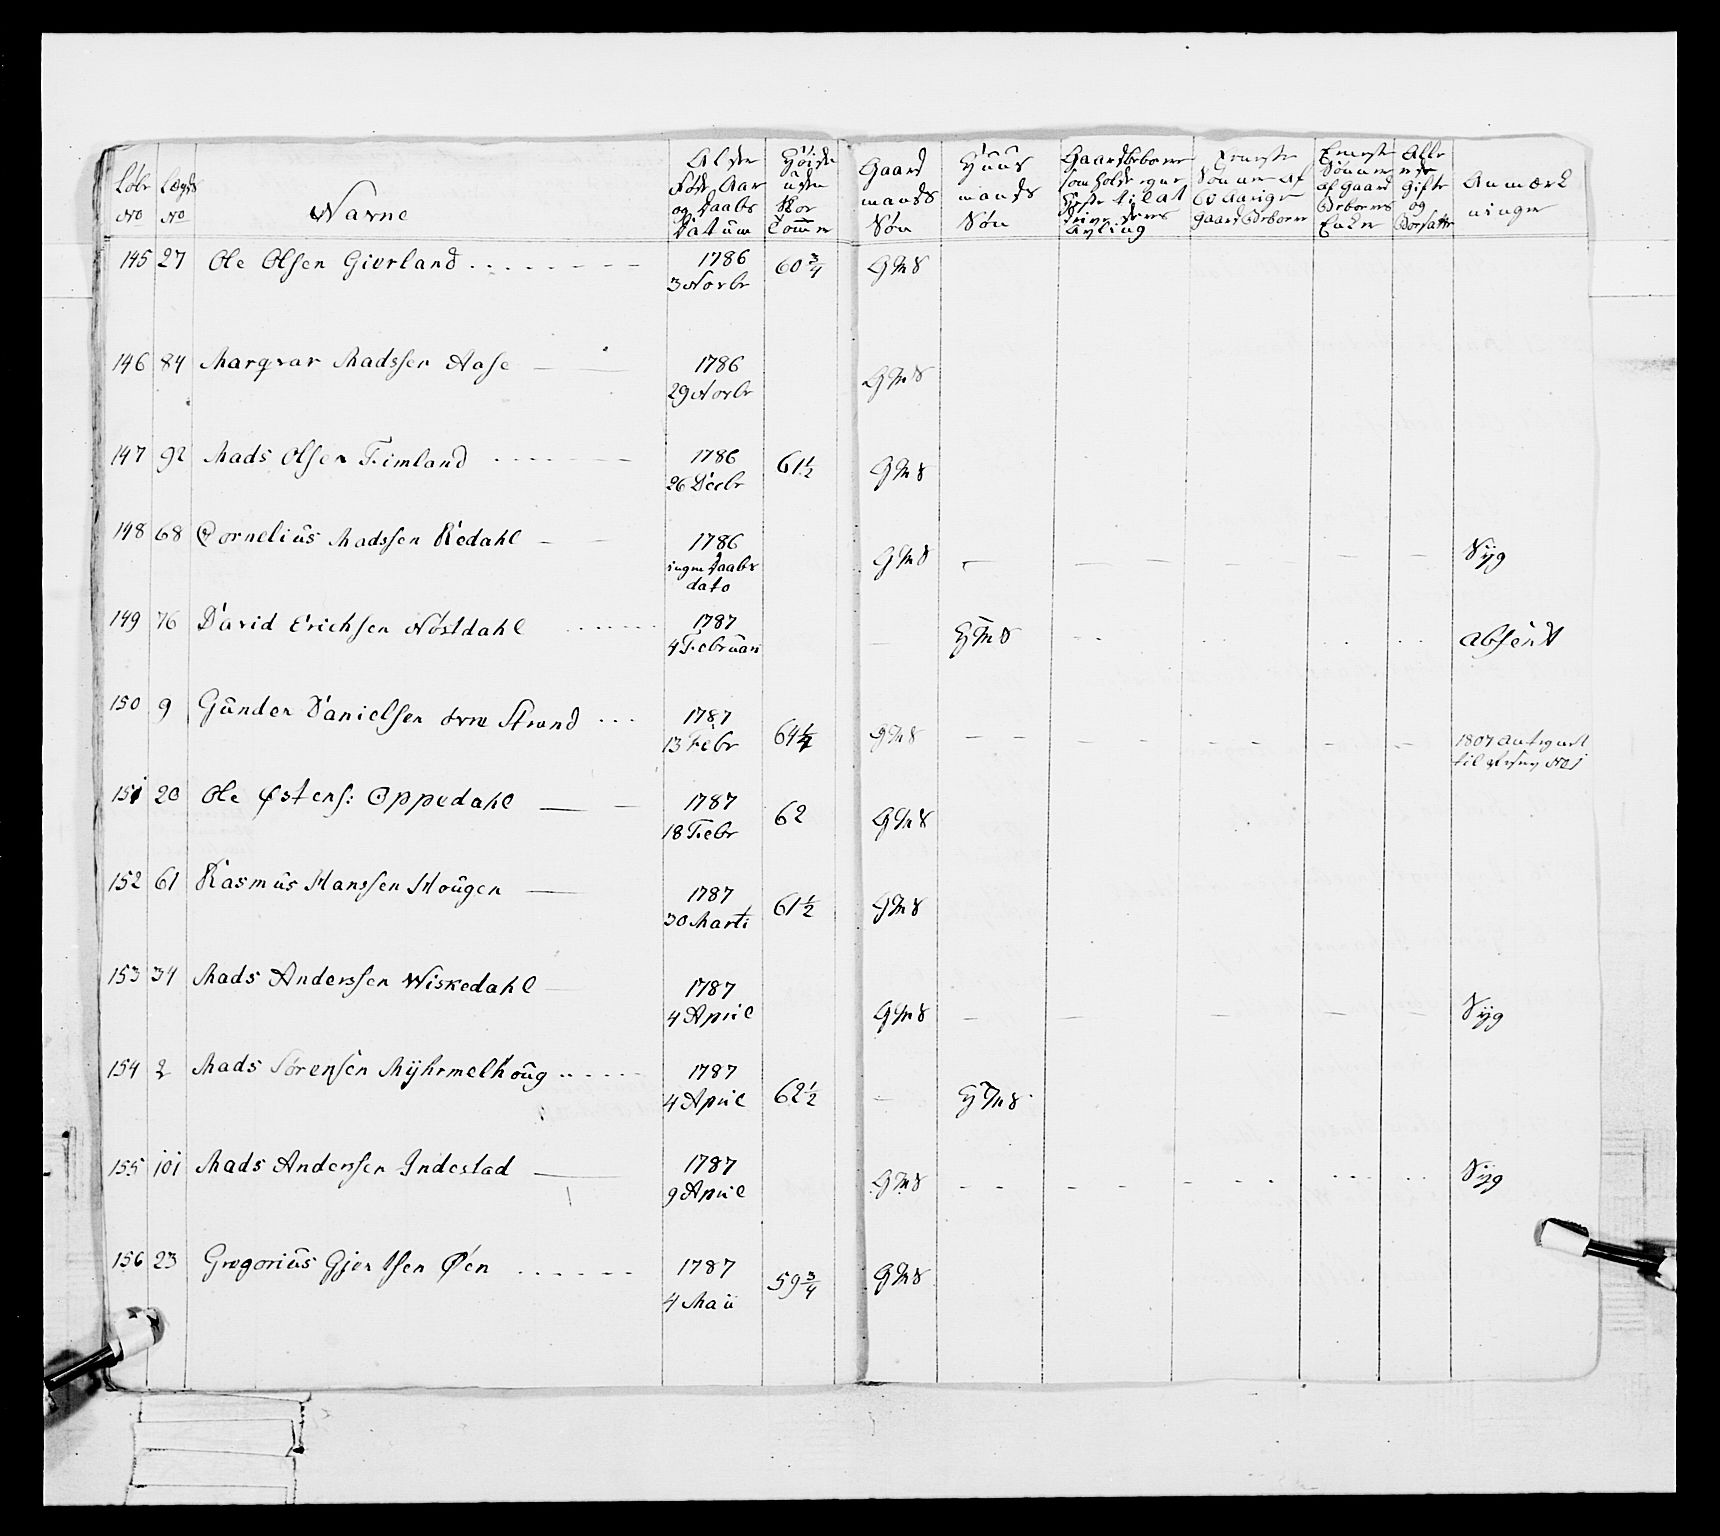 Løbe No
Lægds No
Navne
Alder Føds Aar og Daabs Datum
Høide uden Skoe Tommer
Gaard mands Søn
Huus mands Søn
Gaardbeboere som holde egne Heste til at drive deres Avling
Eeneste Sønner af 60 Aarige Gaard Beboere
Eeneste Sønner af Gaard Beboeres Enker
Alle Gifte og Bosatte
Anmærkninger
145 27 Ole Olsen Gierland 1786 3 Novbr 60 3/4 GMS
146 84 Marqvar Madssen Aase 1786 29 Novbr GMS
147 92 Mads Olsen Fimland 1786 26 Decbr 61 1/2 GMS
148 68 Cornelius Madssen Redahl 1786 ingen Daabs dato GMS Syg
149 76 David Erichsen Nøstdahl 1787 4 Februari HMS absent
150 9 Gunder Danielsen øvre Strand 1787 13 Febr 64 1/4 GMS 1807 antegnet til No 1
151 20 Ole Østens: Oppedahl 1787 18 Febr 62 GMS
152 61 Rasmus Hanssen Hougen 1787 30 Marti 61 1/2 GMS
153 34 Mads Anderssen Wiskedahl 1787 4 April GMS Syg
154 2 Mads Sørensen Myhrmelhoug 1787 4 April 62 1/2 HMS
155 101 Mads Andersen Indestad 1787 9 April GMS Syg
156 23 Gregorius Gjertsen Øen 1787 4 Maii 59 3/4 GMS